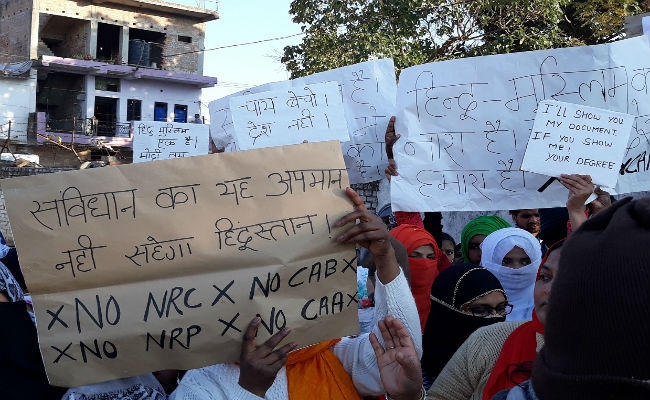 संविधान का यह अपमान
नही सहेगा हिंदूस्तान।
× NO NRC × NO CAB ×
× NO NRP × NO CAA ×
हिन्दू मुस्लिम
एक है।
चाय बेचो।
देश नहीं।
है।
हिन्दू-मुस्लिम
नारा है।
हमारा है।
I'LL SHOW YOU
MY DOCUMENT
IF YOU SHOW
ME!
YOUR DEGREE